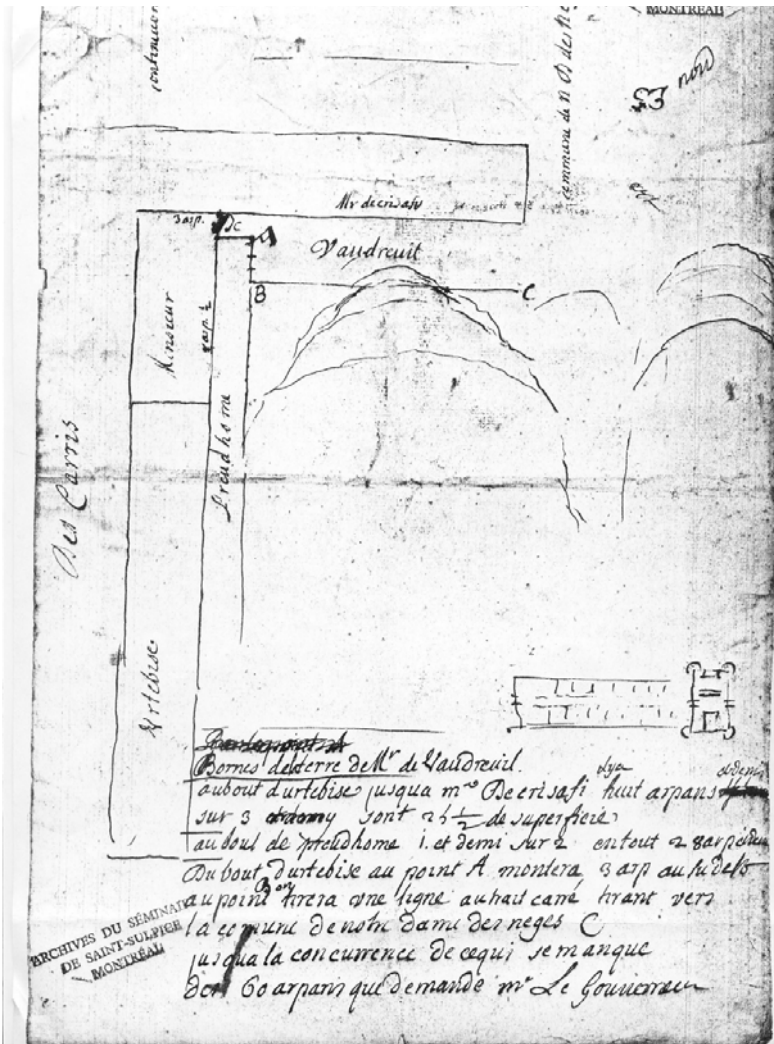 MONTRÉAL
commune de n D des ne
53
non
Mr decrisafi
3 arp.
A
Vaudreuil
B
C
Monsieur
Preudhome
Des Carris
Urtebise
Bornes de terre de Mr de Vaudreuil.
au bout durtebise jusqua mr Decrisafi il y a huit arpans et demi
sur 3 sont 25 1/2 de superficie
au bout de preudhome 1. et demi sur 2 en tout 28 arp
Du bout durtebise au point A montera 3 arp au
au point B on tirera une ligne au hait carré tirant vers
la comune de notre dame des neges C
jusqua la concurrence de cequi se manque
des 60 arpans que demande mr Le Gouverneur
ARCHIVES DU SÉMINAIRE
DE SAINT-SULPICE
MONTRÉAL